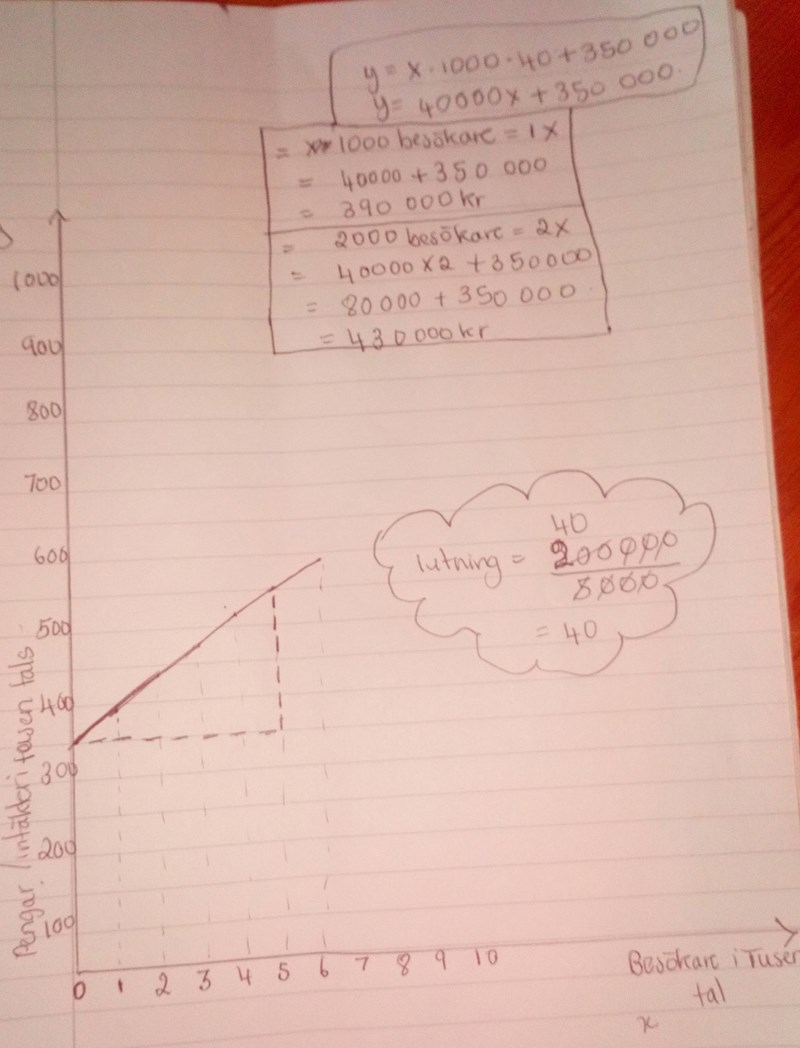 y = x · 1000 · 40 + 350 000
y = 40000x + 350 000
= 1000 besökare = 1x
= 40000 + 350 000
= 390 000 kr
= 2000 besökare = 2x
= 40000 x2 + 350000
= 80000 + 350 000
= 430000kr
1000
900
800
700
600
500
400
300
200
100
0 1 2 3 4 5 6 7 8 9 10
Pengar /intäkter i tusen tals
40
lutning = 200000
5000
= 40
Besökare i Tusen
tal
x